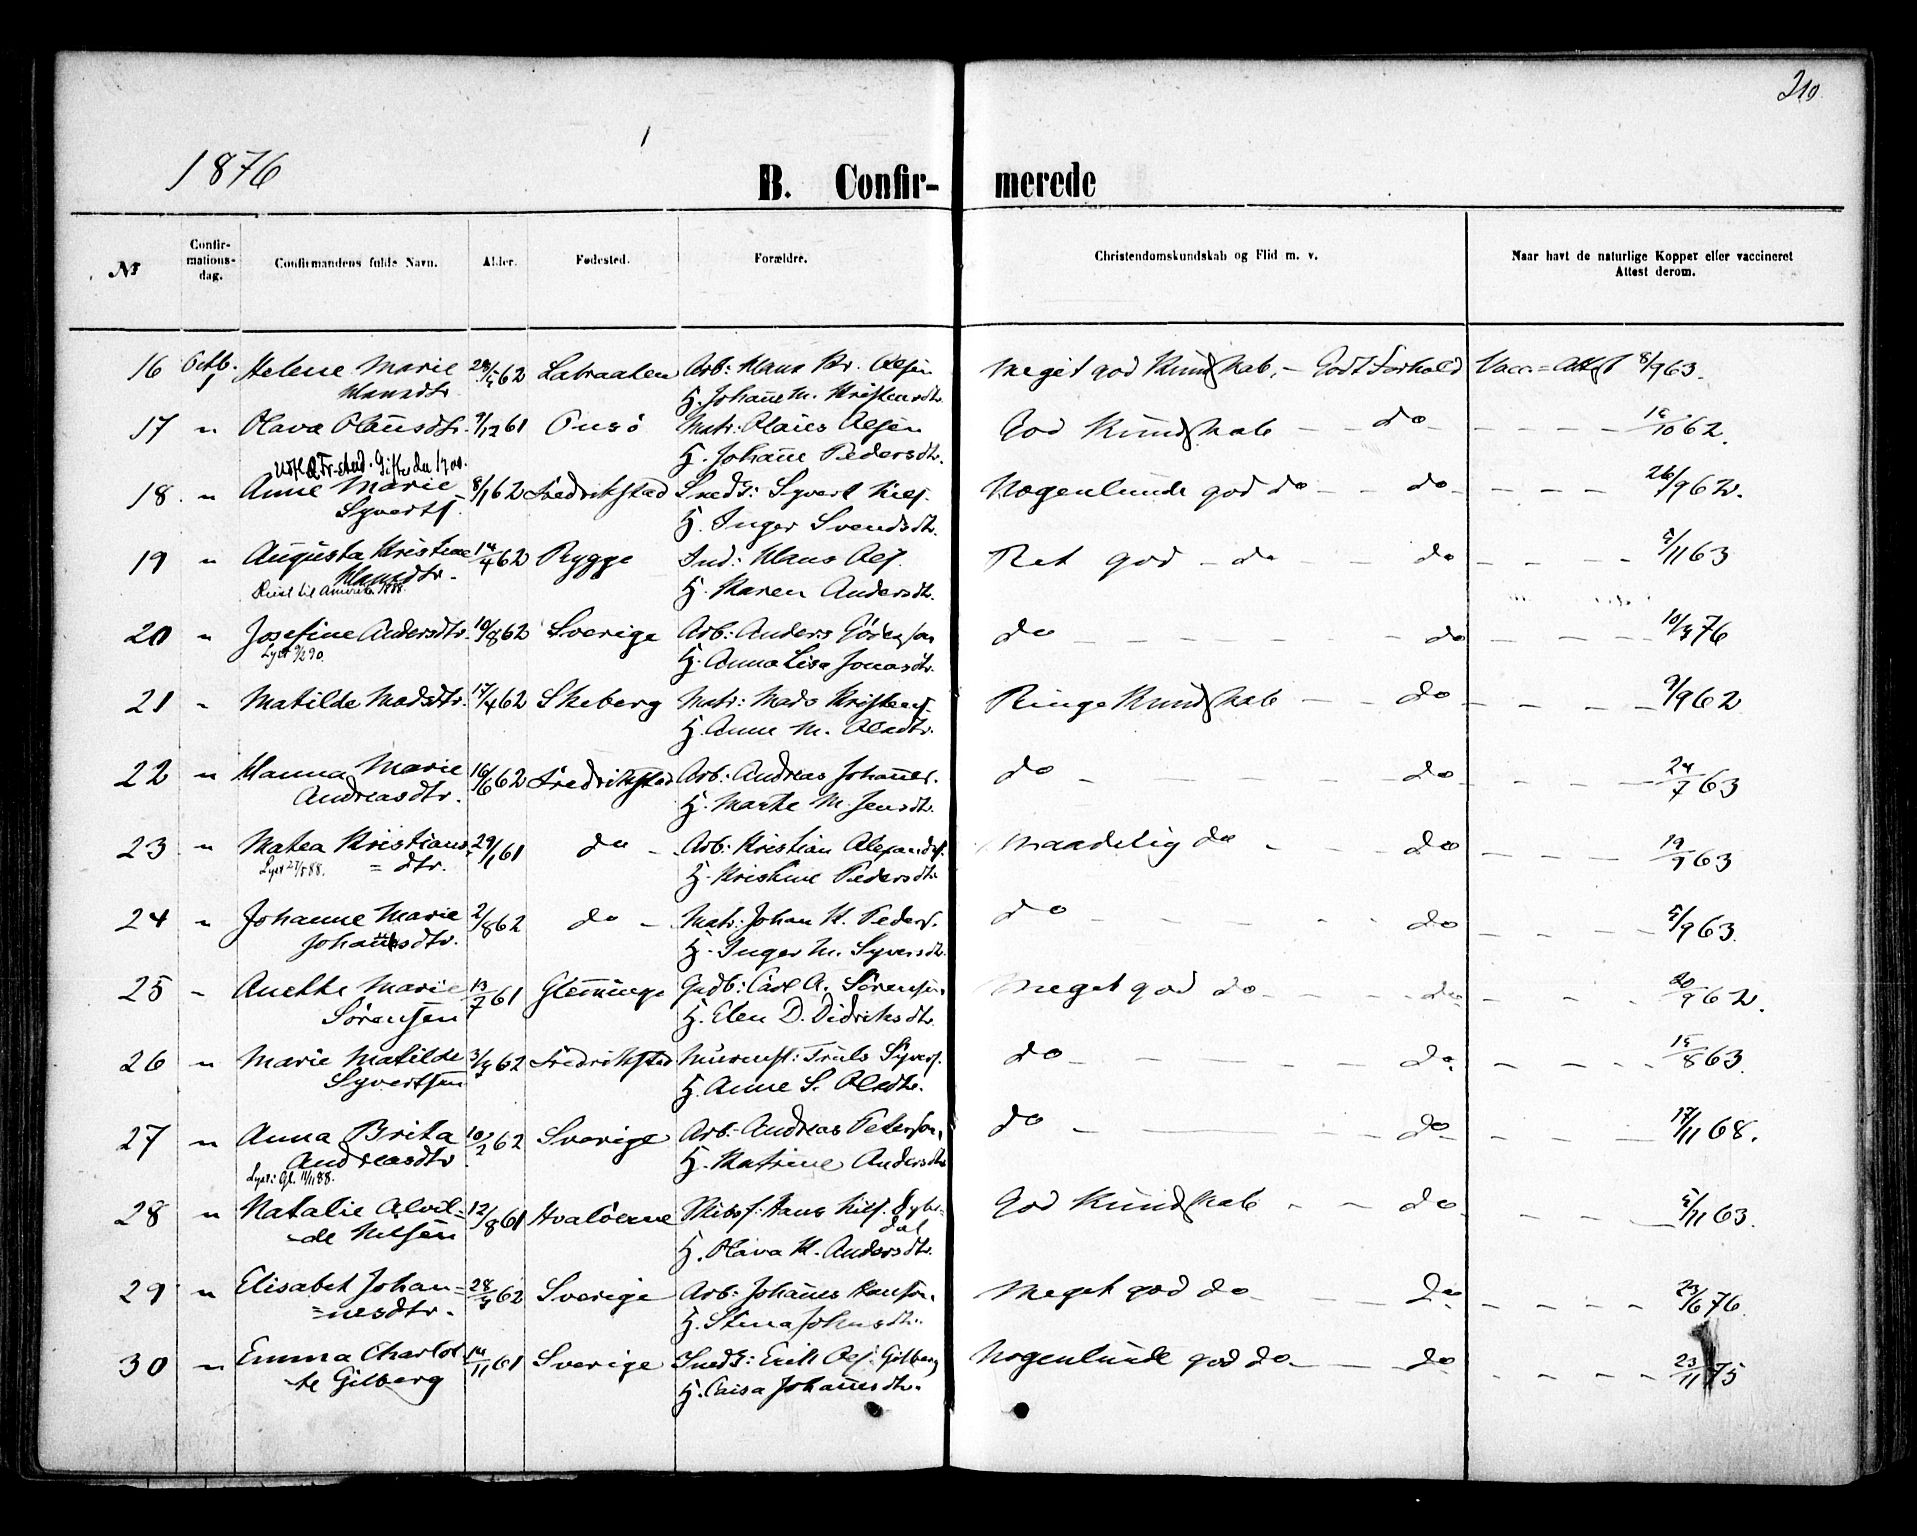 210
1876
B. Confir- merede
№ Confir- mations- dag. Confirmandens fulde Navn. Alder. Fødested. Forældre. Christendomskundskab og Flid m. v. Naar havt de naturlige Kopper eller vaccineret Attest derom.
16 Octb. 1 Helene Marie 62 Labraaten Arb: Hans Kr. Olsen Meget god Kundskab. – Godt Forhold Vacc = Attest 8/9 63.
Hansdtr. H. Johanne M. Kristensdtr.
17 " Olava Olausdtr. 9/12 61 Onsö Matr: Olaves Olsen God Kundskab – – do – – – – 62.
H. Johanne Pedersdtr.
18 " Anne Marie 8/1 62 Fredrikstad Snedk: Syvert Nils. Nogenlunde god do – – do – – – – 26/9 62.
Syverts. H. Inger Svendsdtr.
19 " Augusta Kristine 14/4 62 Rygge Ind: Hans Ols. Ret god – do – do – – – – 5/11 63
Hansdtr. H. Karen Andersdtr.
Reist til Amerika 1888.
20 " Josefine Andersdtr. 10/8 62 Sverige Arb: Anders do – – – – do – – – 76
Lyst 9/2 90. H. Anna Lisa Jonasdtr.
21 " Matilde Madsdtr. 17/4 62 Skeberg Matr: Mads Kristens. Ringe Kundskab – – do – – – – 9/9 62
H. Anne M. Olsdtr.
22 " Hanna Marie 16/6 62 Fredrikstad Arb: Andreas Johannes. do – – – – do – – – – 24/7 63
Andreasdtr. H. Marte M. Jensdtr.
23 " Matea Kristians- 29/1 61 do – Arb: Kristian Alexands. Maadelig do – – – do – – – – 19/9 63
= dtr. H. Kristine Pedersdtr.
Lyst 27/5 88.
24 " Johanne Marie 2/8 62 do – Matr: Johan H. Peders. do – – – – do – – – – 5/9 63.
Johansdtr. H. Inger M. Syversdtr.
25 " Anette Marie 13/7 61 Glemminge Gudb: Carl A. Sörensen Meget god do – – – – do – – – – 20/9 62.
Sörensen H. Elen D. Didriksdtr.
26 " Marie Matilde 62 Fredrikstad Murmst: Truls Syvers. do – – – – do. – – – – 15/8 63.
Syvertsen H. Anne S. Olsdtr.
27 " Anna Brita 10/2 62 Sverige Arb: Andreas Peterson, do – – – – do – – – – 17/11 68.
Andreasdtr. H. Katrine Andersdtr.
Lyst: Gl. 11/11 88.
28 " Natalie Alvil- 12/8 61 Hvalöerne Skibsf: Hans Nils. Dybe- God Kundskab – – do – – – – 5/11 63.
-de Nilsen dal
H. Olava H. Andersdtr.
29 " Elisabet Johan- 62 Sverige Arb: Johannes Hanson. Meget god do – – – do – – – – 23/6 76.
=nesdtr. H. Stina Johnsdtr.
30 " Emma Charlot 14/11 61 Sverige Snedk: Erik Ols. Gilberg Nogenlunde god do – – do – – – – 23/11 75
-te Gilberg H. Caisa Johannsdtr.